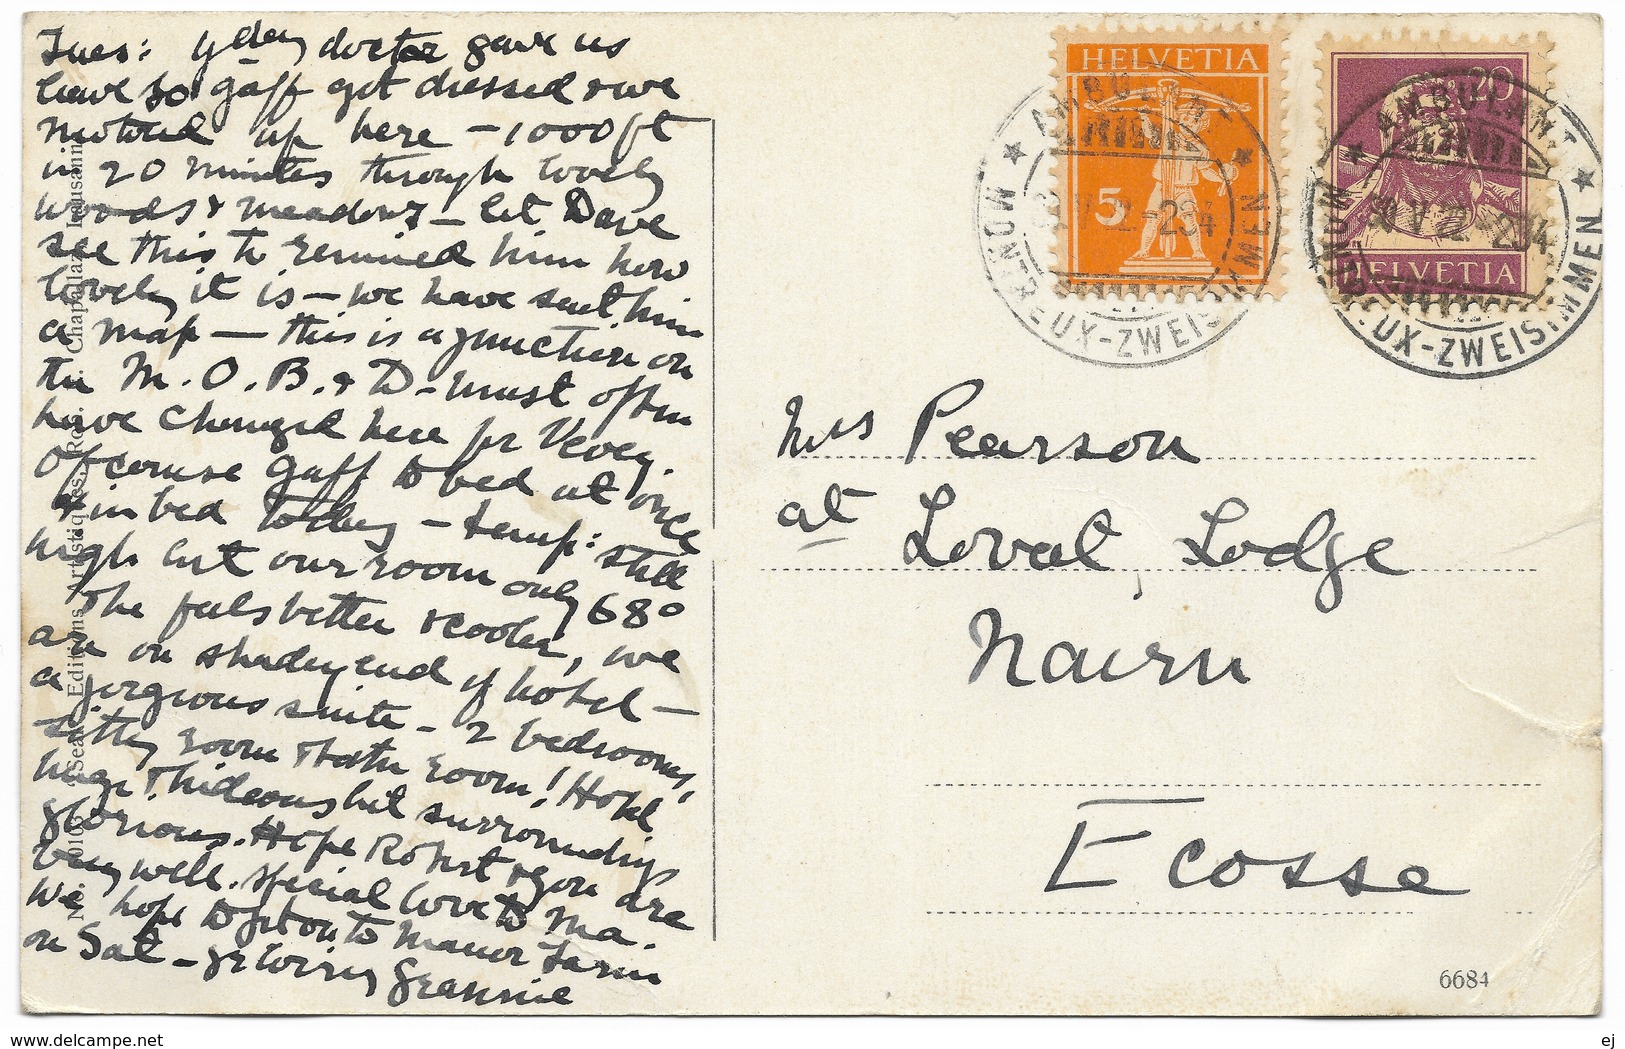 Tues: yday doctor gave us
leave so Gaff got dressed & we
motored up here - 1000 ft
in 20 minutes through lovely
woods & meadows - let Dave
see this to remind him how
lovely it is - we have sent him
a map - this is a junction on
the M.O.B. & D - must often
have changed here for Vevey.
Of course Gaff to bed at once
& in bed today - temp: still
high but our room only 68°
& he feels better & cooler, we
are on shady end of hotel -
a gorgeous suite - 2 bedrooms,
sitting room & bath room! Hotel
huge & hideous but surroundings
glorious. Hope Robert & you are
very well. Special love to Ma.
We hope to get on to Manor Farm
on Sat - yr loving Grannie
Editions Artistiques
Chapallaz Lausanne
HELVETIA
5
HELVETIA
20
AMBULANT
MONTREUX-ZWEISIMMEN
AMBULANT
MONTREUX-ZWEISIMMEN
Mrs Pearson
at Lovat Lodge
Nairn
Ecosse
6684
delcampe.net
ej